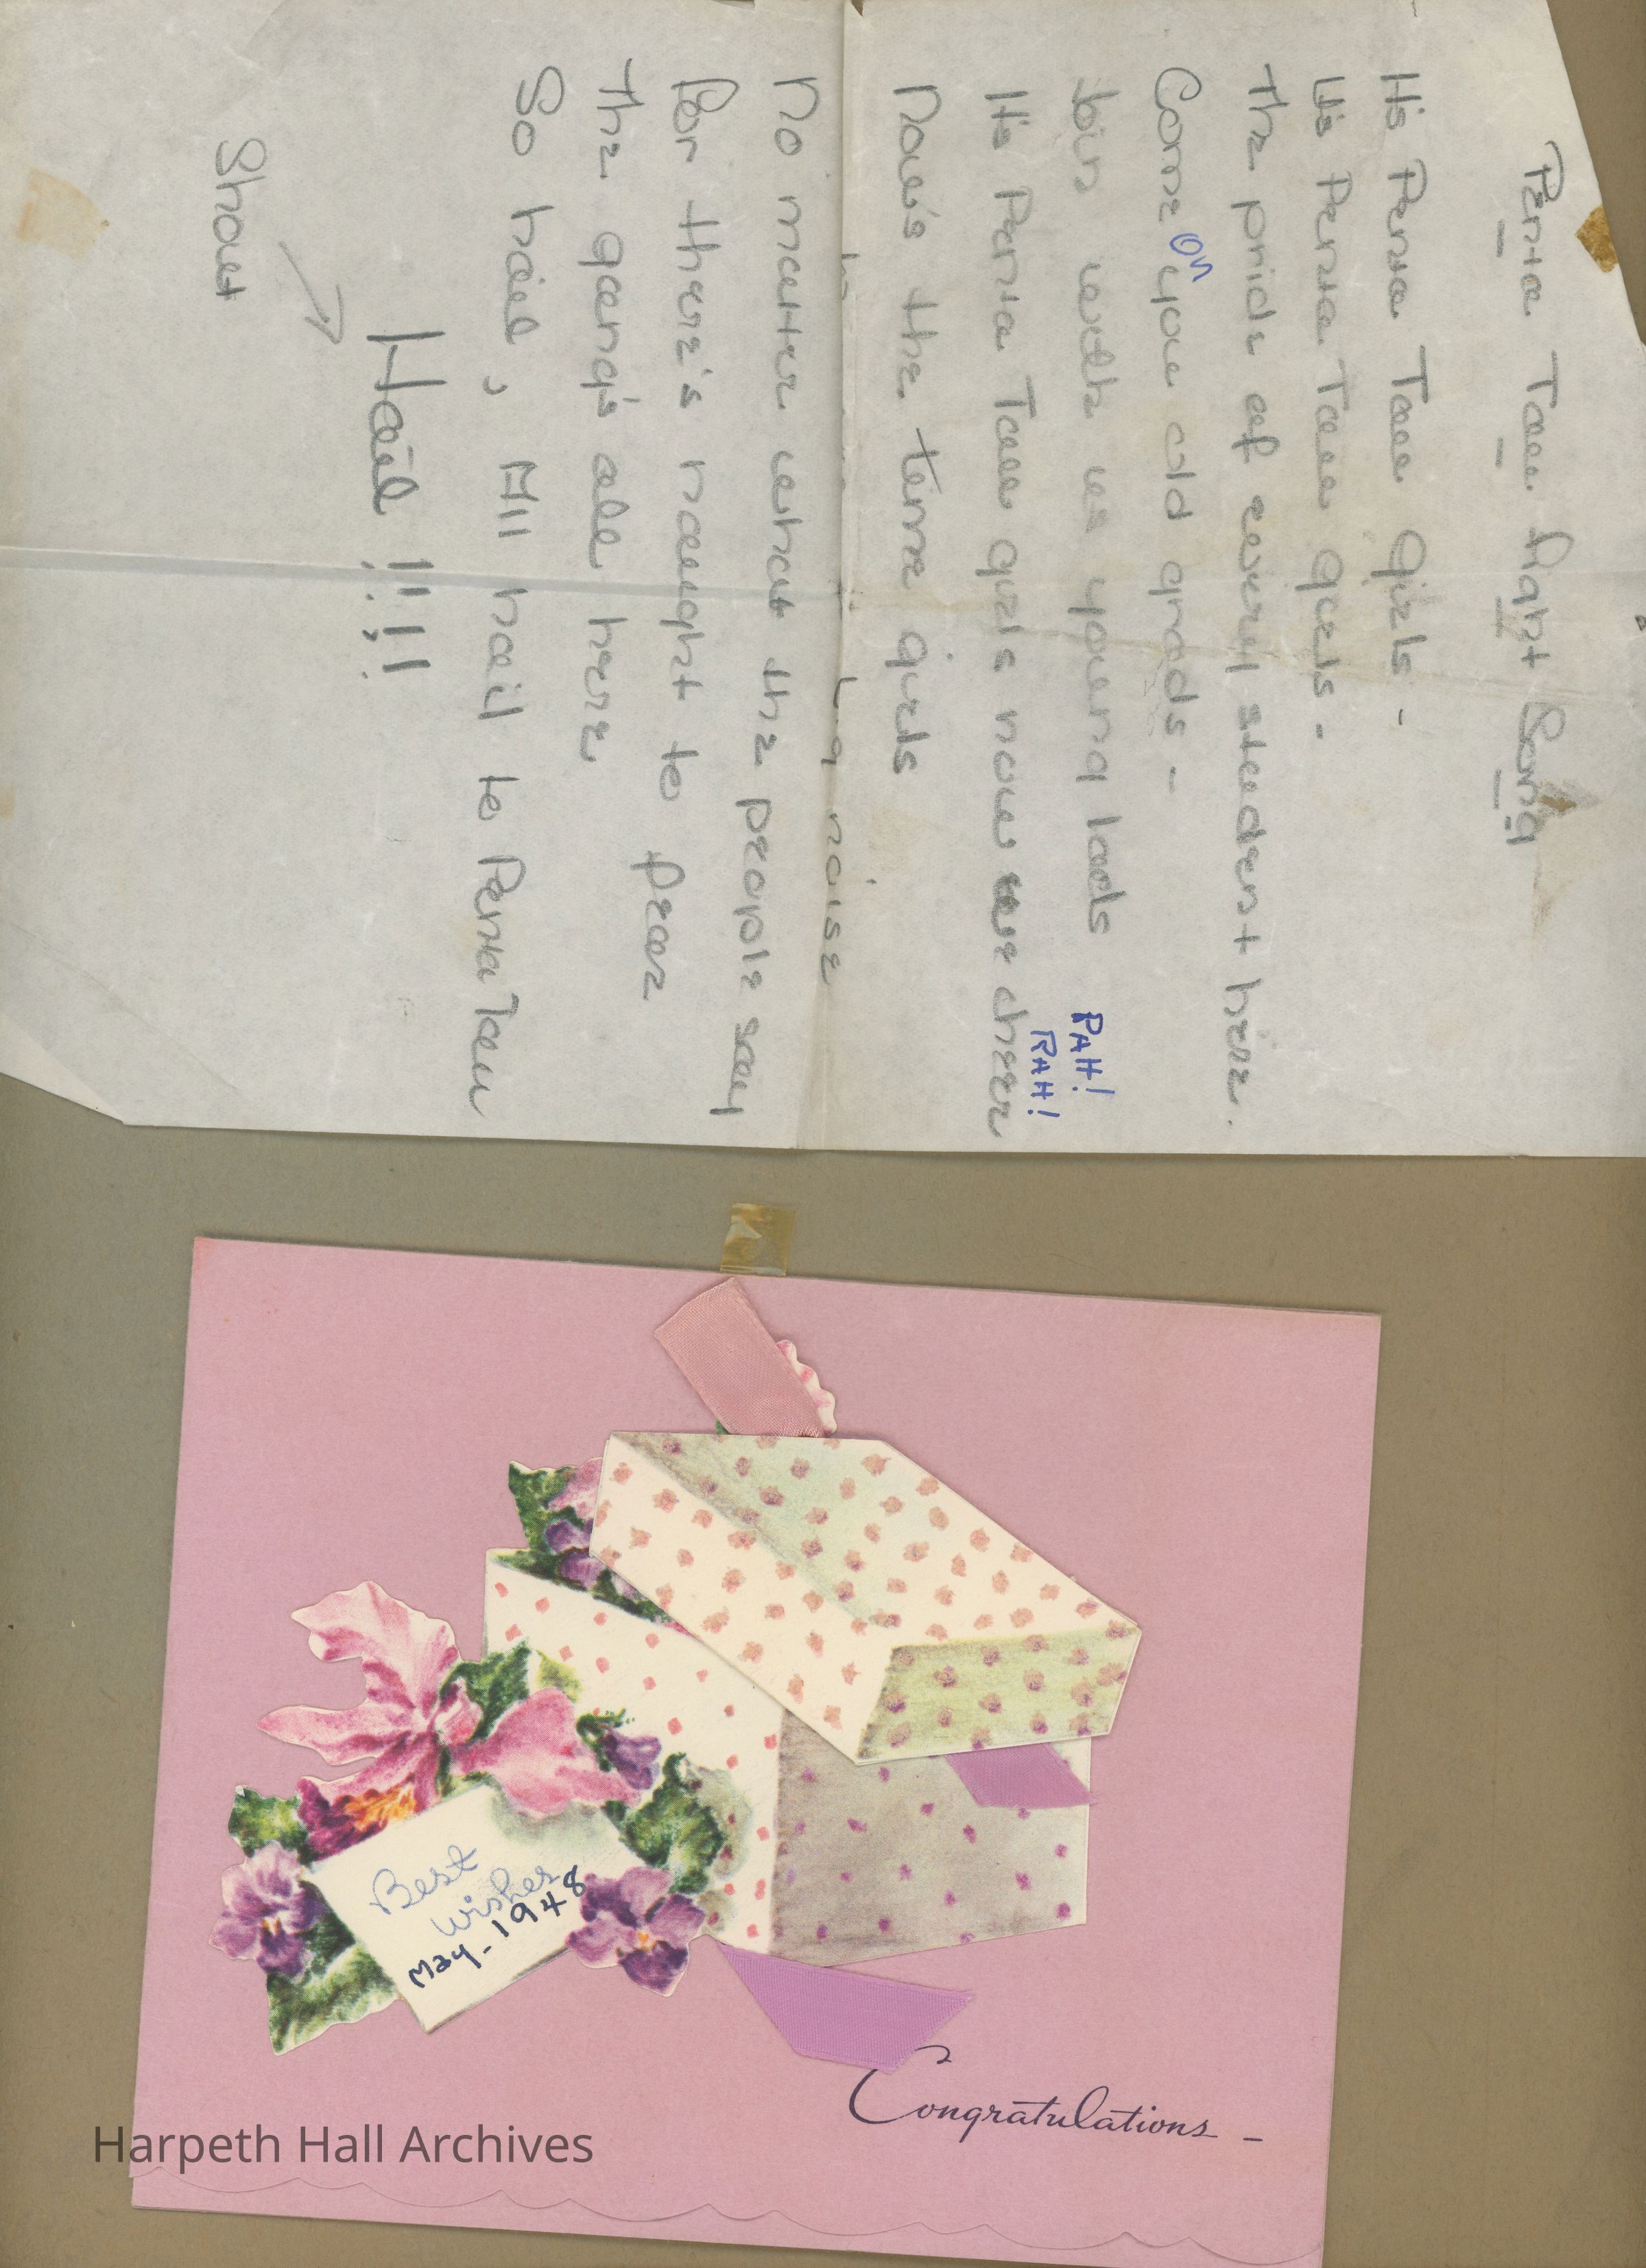 Penta Tau fight Song
It's Penta Tau Girls -
It's Penta Tau girls -
The pride of every student here.
Come on you old grads -
Join with us young lads RAH!
RAH!
It's Penta Tau girls now we cheer
Now's the time girls
noise
No matter what the people say
For there's naught to fear
The gang's all here
So hail, All hail to Penta Tau
Hail !!!!
Shout
Best
Wishes
May - 1948
Congratulations -
Harpeth Hall Archives